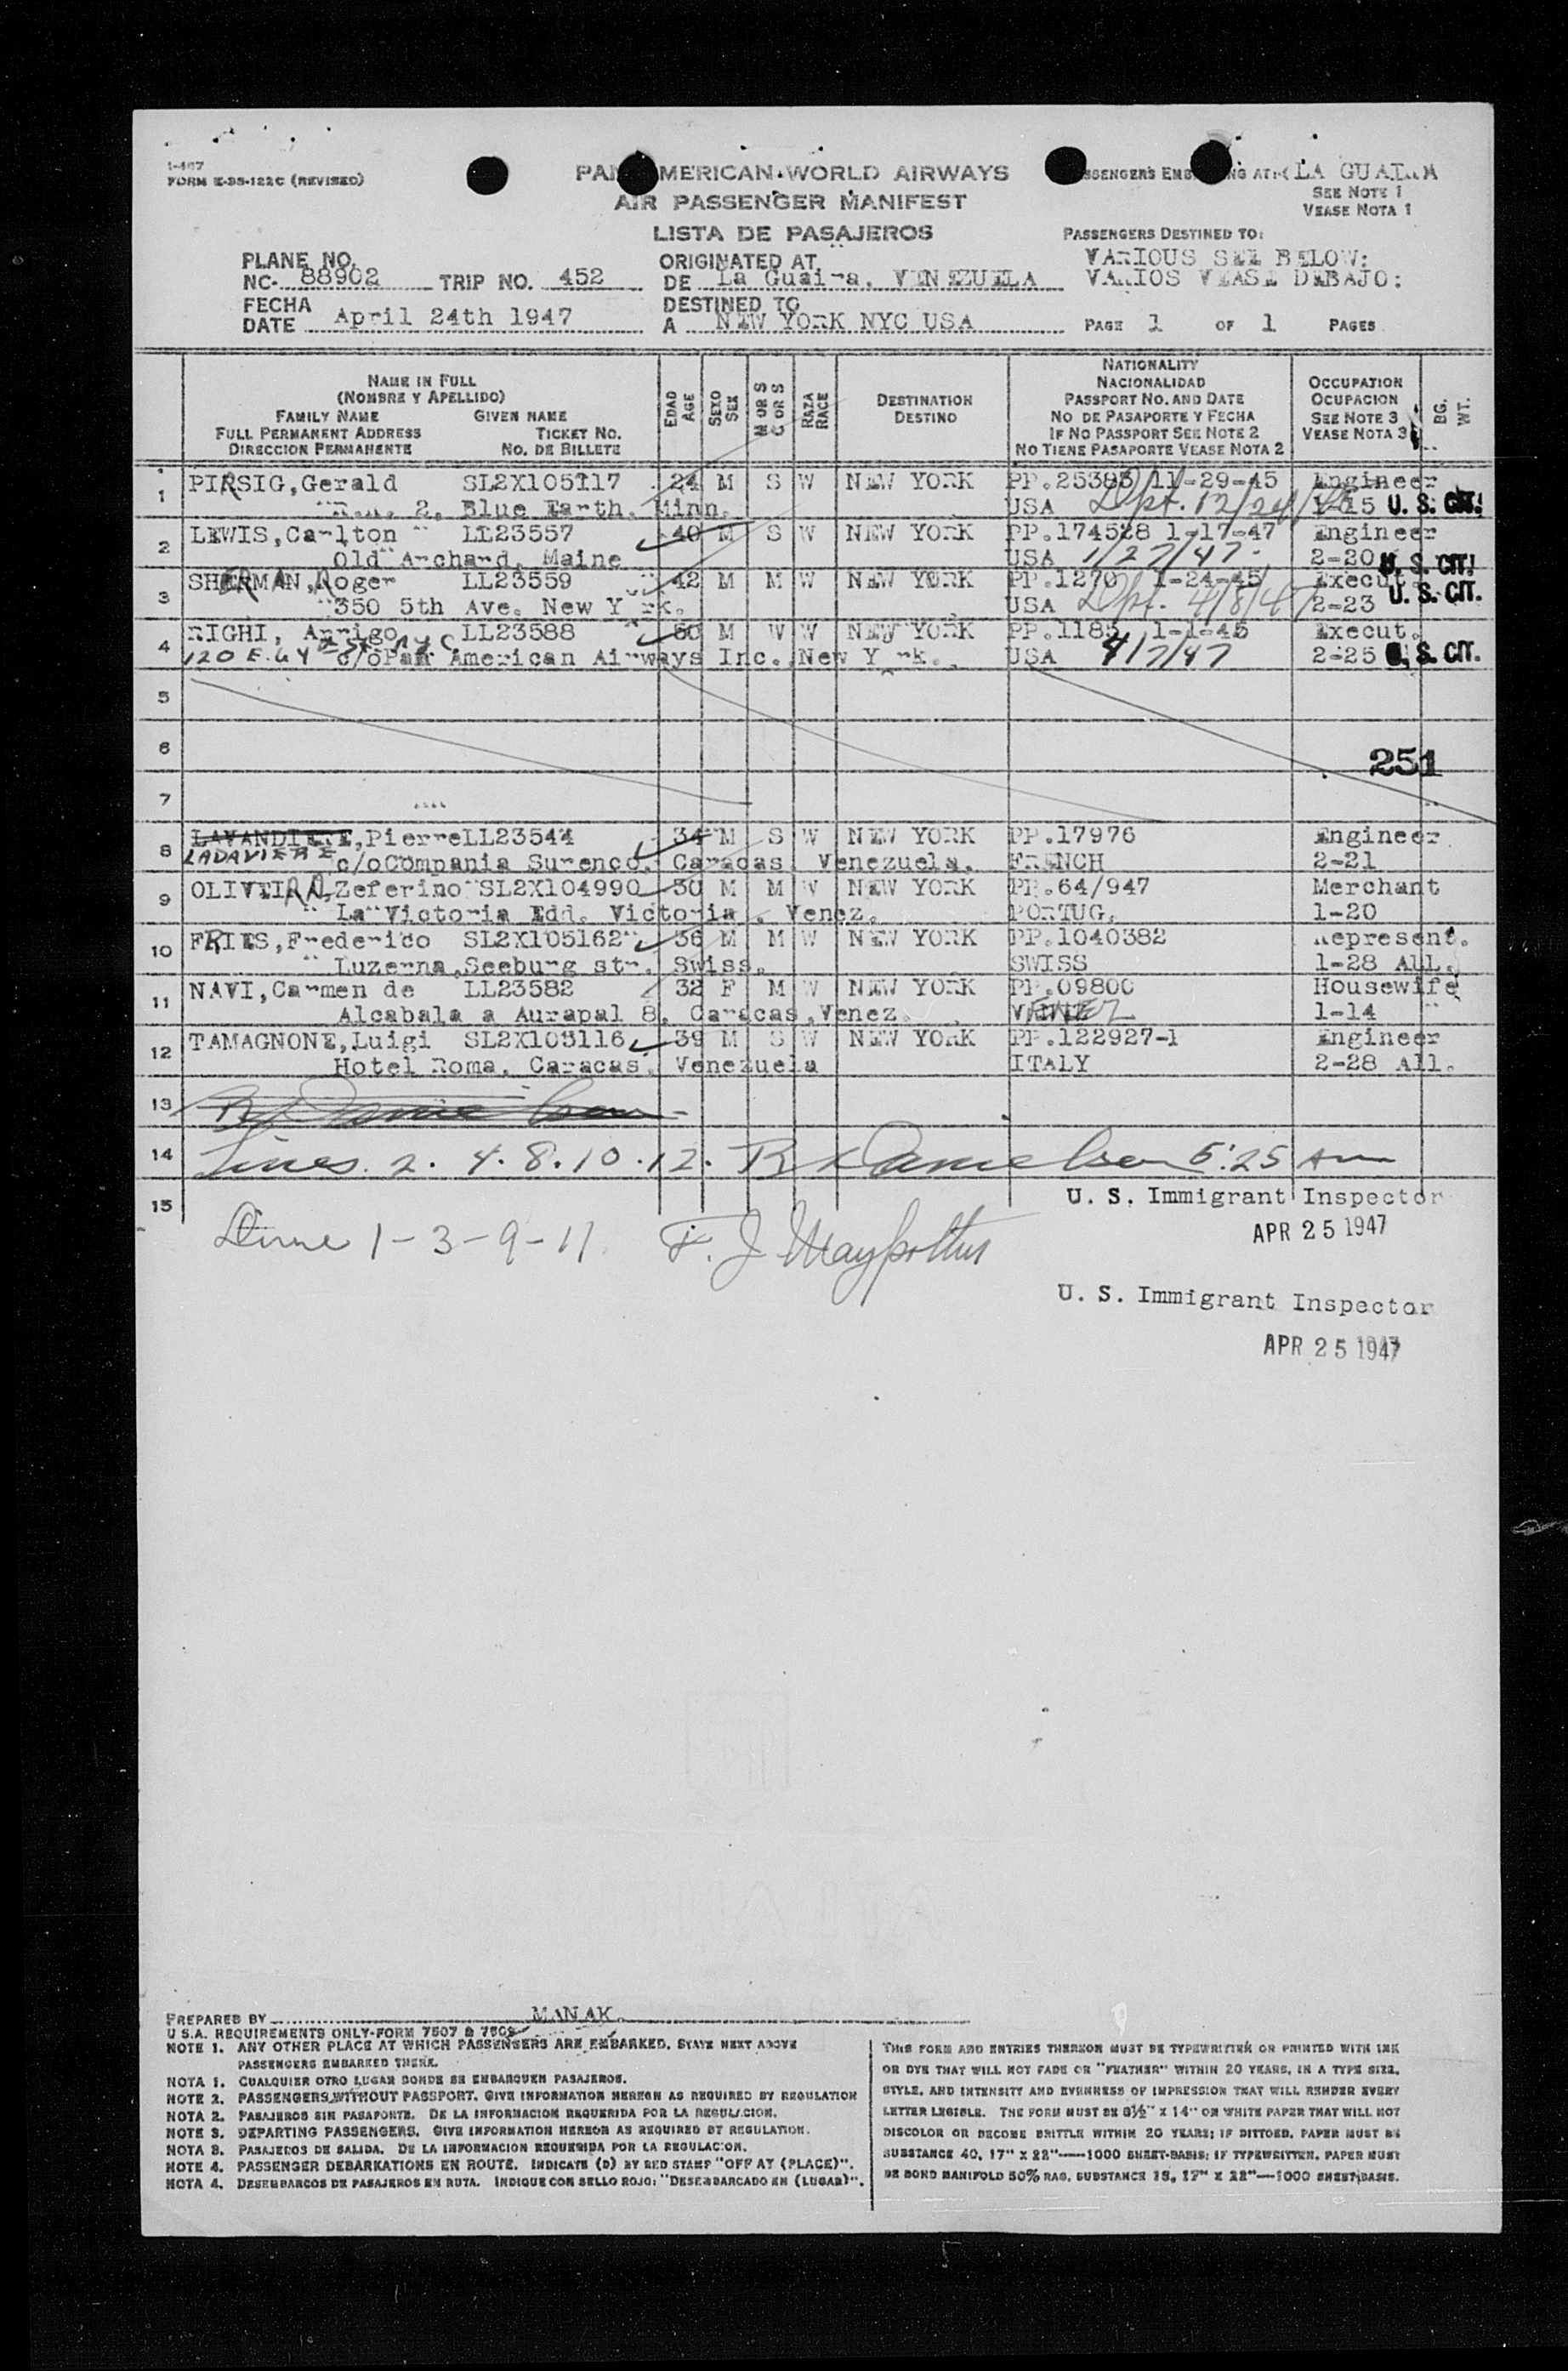 I-467
FORM E-35-122C (REVISED)
PAN AMERICAN WORLD AIRWAYS
AIR PASSENGER MANIFEST
LISTA DE PASAJEROS
LA GUAIRA
SEE NOTE 1
VEASE NOTA 1
PASSENGERS DESTINED TO:
VARIOUS SEE BELOW:
VARIOS VEASE DEBAJO:
PLANE NO.
NC- 88902 TRIP NO. 452
ORIGINATED AT
DE La Guaira, VENEZUELA
FECHA
DATE April 24th 1947
DESTINED TO
A NEW YORK NYC USA
PAGE 1 OF 1 PAGES
NAME IN FULL
(NOMBRE Y APELLIDO)
FAMILY NAME GIVEN NAME
FULL PERMANENT ADDRESS TICKET NO.
DIRECCION PERMANENTE NO. DE BILLETE
EDAD
AGE
SEXO
SEX
M OR S
C OR S
RAZA
RACE
DESTINATION
DESTINO
NATIONALITY
NACIONALIDAD
PASSPORT NO. AND DATE
NO DE PASAPORTE Y FECHA
IF NO PASSPORT SEE NOTE 2
NO TIENE PASAPORTE VEASE NOTA 2
OCCUPATION
OCUPACION
SEE NOTE 3
VEASE NOTA 3
BG.
WT.
1 PIRSIG, Gerald SL2X105117 24 M S W NEW YORK PP.25385 11-29-45 Engineer
R.R. 2, Blue Earth, Minn. USA Dpt. 12/24/ 1-15 U. S. CIT.
2 LEWIS, Carlton LL23557 40 M S W NEW YORK PP.174528 1-17-47 Engineer
Old Archard, Maine USA 1/27/47. 2-20 U. S. CIT.
3 SHERMAN, Roger LL23559 42 M M W NEW YORK PP.1270 1-24-45 Execut.
350 5th Ave. New Y rk. USA Dpt. 4/8/47 2-23 U. S. CIT.
4 RIGHI, Arrigo LL23588 50 M W W NEW YORK PP.1185 1-1-45 Execut.
120 E. 64 EST. NYC c/oPan American Airways Inc. New Y rk. USA 4/7/47 2-25 U. S. CIT.
5
6
251
7
8 LAVANDIERE, Pierre LL23544 34 M S W NEW YORK PP.17976 Engineer
LADAVIERE c/oCompania Surenco, Caracas, Venezuela. FRENCH 2-21
9 OLIVEIRA, Zeferino SL2X104990 50 M M W NEW YORK PP.64/947 Merchant
La Victoria Edd. Victoria, Venez. PORTUG. 1-20
10 FRIES, Frederico SL2X105162 36 M M W NEW YORK PP.1040382 Represent.
Luzerna, Seeburg str. Swiss. SWISS 1-28 All.
11 NAVI, Carmen de LL23582 32 F M W NEW YORK PP.09800 Housewife
Alcabala a Aurapal 8, Caracas, Venez. VENEZ 1-14
12 TAMAGNONE, Luigi SL2X105116 39 M S W NEW YORK PP.122927-1 Engineer
Hotel Roma, Caracas, Venezuela ITALY 2-28 All.
13
14 Lines. 2. 4. 8. 10. 12. R K Danielson 5:25 Am
15 U. S. Immigrant Inspector
APR 25 1947
Line 1-3-9-11. F. J.
U. S. Immigrant Inspector
APR 25 1947
PREPARED BY MANAK.
U S.A. REQUIREMENTS ONLY-FORM 7507 & 7509
NOTE 1. ANY OTHER PLACE AT WHICH PASSENGERS ARE EMBARKED, STATE NEXT ABOVE
PASSENGERS EMBARKED THERE.
NOTA 1. CUALQUIER OTRO LUGAR DONDE SE EMBARQUEN PASAJEROS.
NOTE 2. PASSENGERS WITHOUT PASSPORT. GIVE INFORMATION HEREON AS REQUIRED BY REGULATION
NOTA 2. PASAJEROS SIN PASAPORTE. DE LA INFORMACION REQUERIDA POR LA REGULACION.
NOTE 3. DEPARTING PASSENGERS. GIVE INFORMATION HEREON AS REQUIRED BY REGULATION.
NOTA 3. PASAJEROS DE SALIDA. DE LA INFORMACION REQUERIDA POR LA REGULACION.
NOTE 4. PASSENGER DEBARKATIONS EN ROUTE. INDICATE (D) BY RED STAMP "OFF AT (PLACE)".
NOTA 4. DESEMBARCOS DE PASAJEROS EN RUTA. INDIQUE CON SELLO ROJO: "DESEMBARCADO EN (LUGAR)".
THIS FORM AND ENTRIES THEREON MUST BE TYPEWRITTEN OR PRINTED WITH INK
OR DYE THAT WILL NOT FADE OR "FEATHER" WITHIN 20 YEARS, IN A TYPE SIZE,
STYLE, AND INTENSITY AND EVENNESS OF IMPRESSION THAT WILL RENDER EVERY
LETTER LEGIBLE. THE FORM MUST BE 8½" X 14" ON WHITE PAPER THAT WILL NOT
DISCOLOR OR BECOME BRITTLE WITHIN 20 YEARS; IF DITTOED, PAPER MUST BE
SUBSTANCE 40, 17" X 22"—1000 SHEET-BASIS; IF TYPEWRITTEN, PAPER MUST
BE BOND MANIFOLD 50% RAG, SUBSTANCE 18, 17" X 22"—1000 SHEET BASIS.